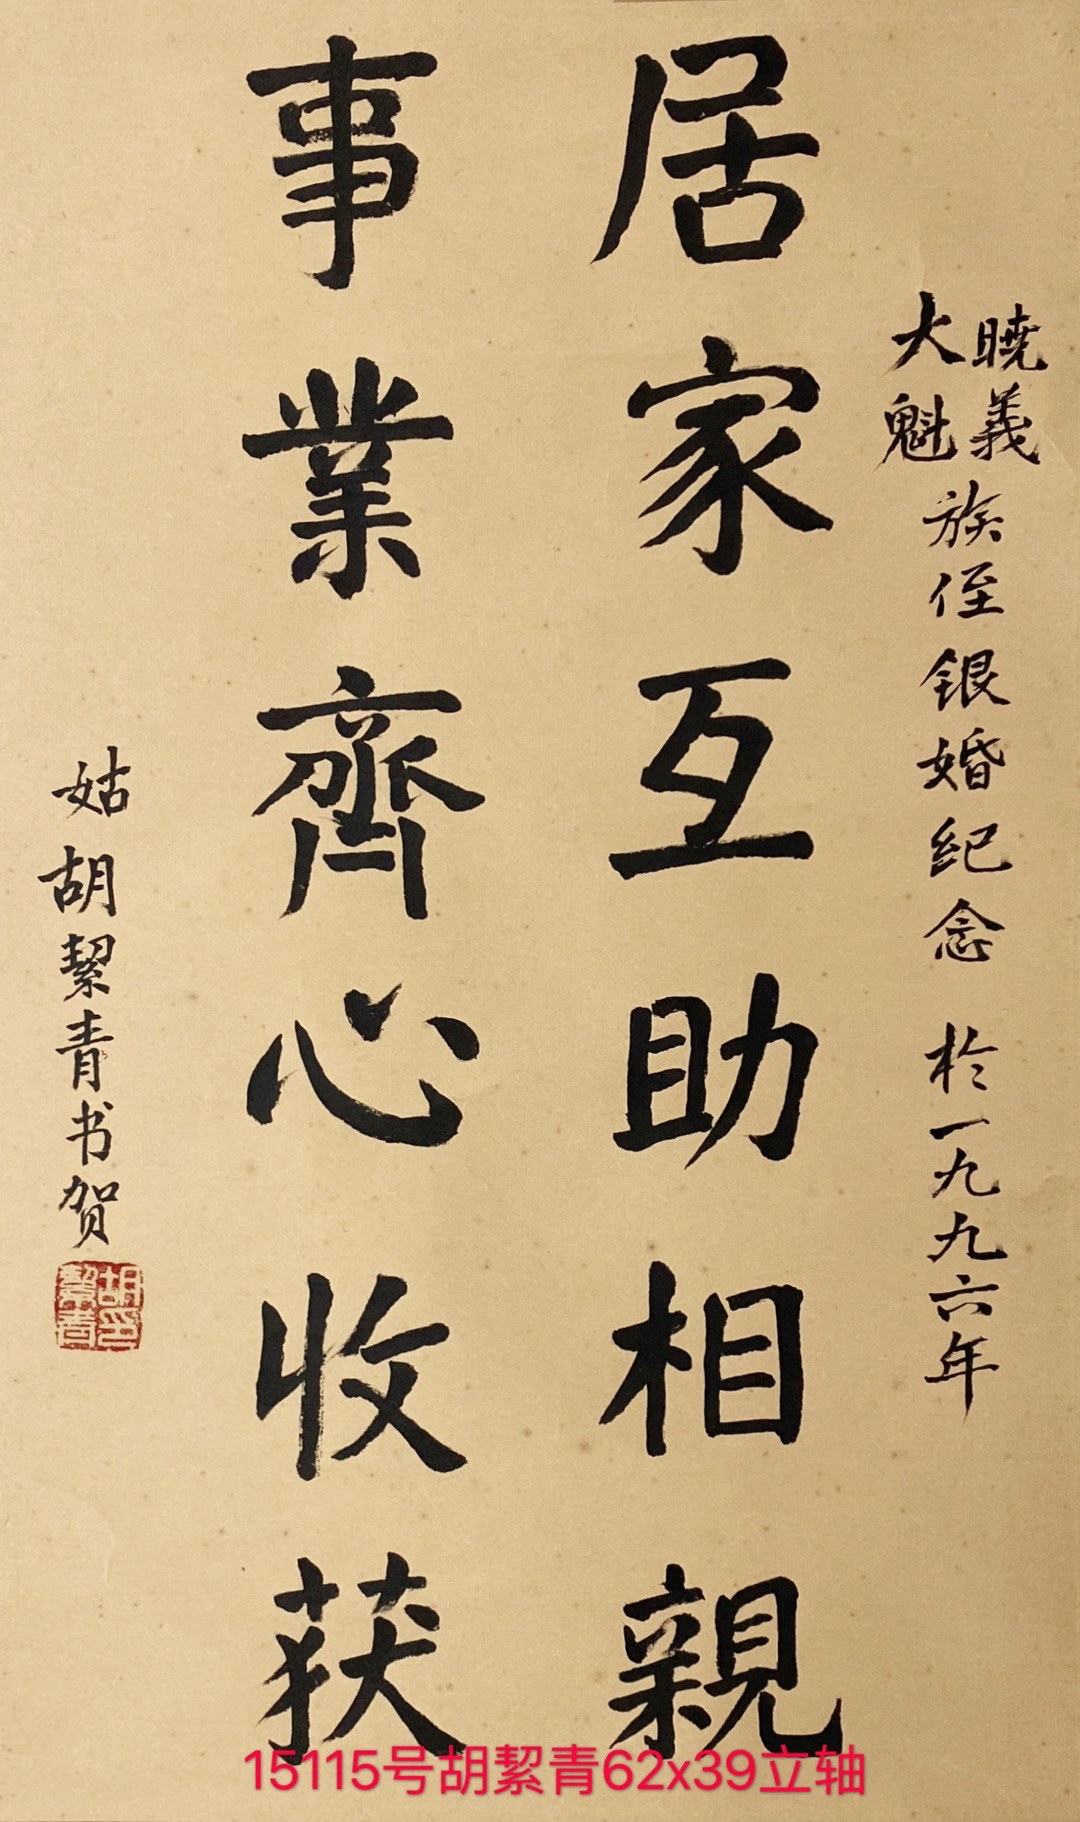 暁義
大魁
族侄银婚纪念 於一九九六年
居家互助相親
事業齊心收获
姑胡絜青书贺
胡絜青印
15115号胡絜青62x39立轴